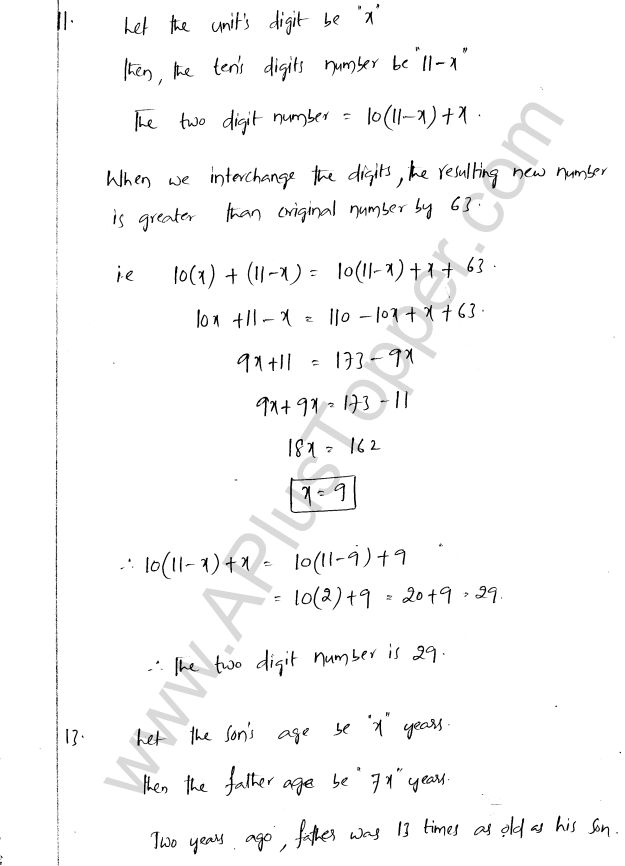 11. Let the unit's digit be "x"
then, the ten's digits number be "11-x"
The two digit number = 10(11-x)+x.
When we interchange the digits, the resulting new number
is greater than original number by 63.
i.e 10(x) + (11-x) = 10(11-x)+x+63.
10x+11-x = 110-10x+x+63.
9x+11 = 173-9x
9x+9x = 173-11
18x = 162
x = 9
∴ 10(11-x)+x = 10(11-9)+9
= 10(2)+9 = 20+9 = 29.
∴ The two digit number is 29.
13. Let the son's age be "x" years.
then the father age be "7x" years.
Two years ago, father was 13 times as old as his son.
www.APlusTopper.com